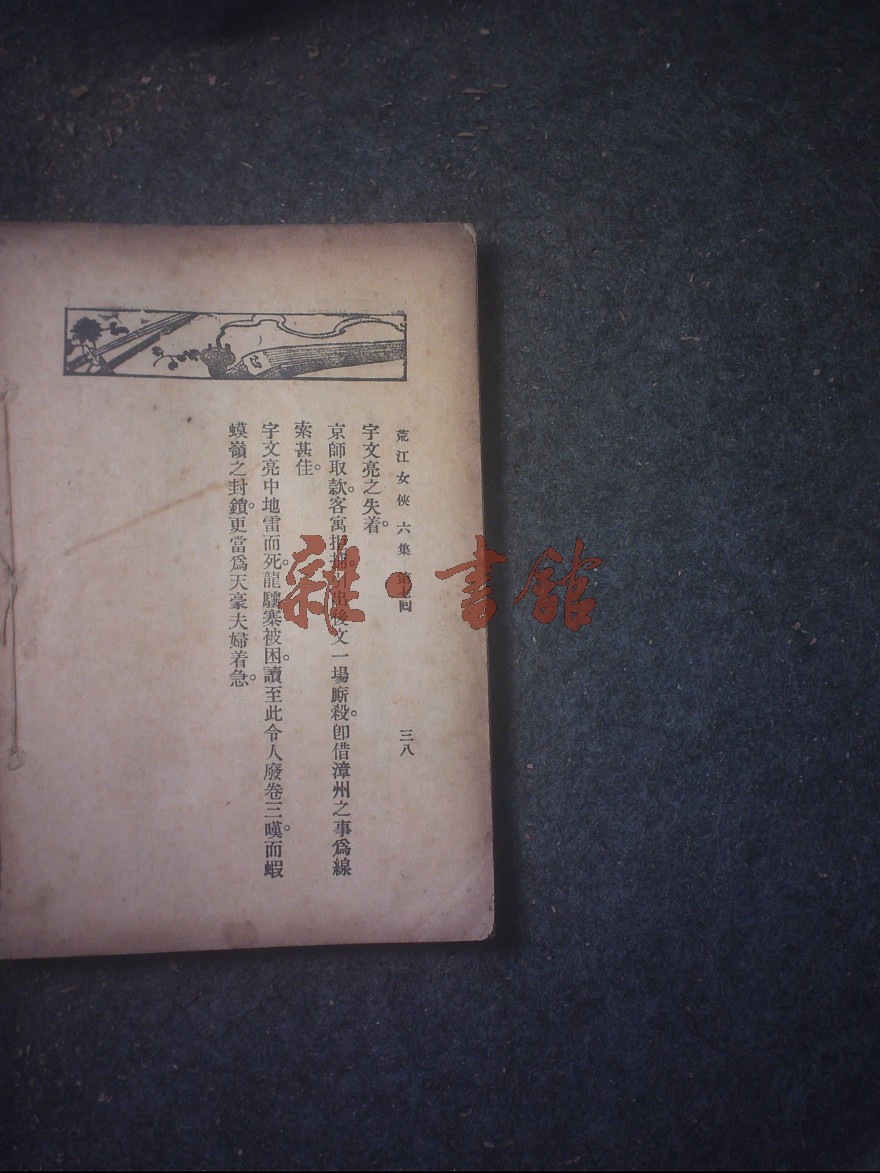 荒江女俠 六集 第七回 三八
宇文亮之失着。
京師取款。客寓拒捕。引出後文一場廝殺。卽借漳州之事爲線
索甚佳。
宇文亮中地雷而死。龍驤寨被困。讀至此令人廢卷三嘆。而蝦
蟆嶺之封鎖。更當爲天豪夫婦着急。
雜·書館